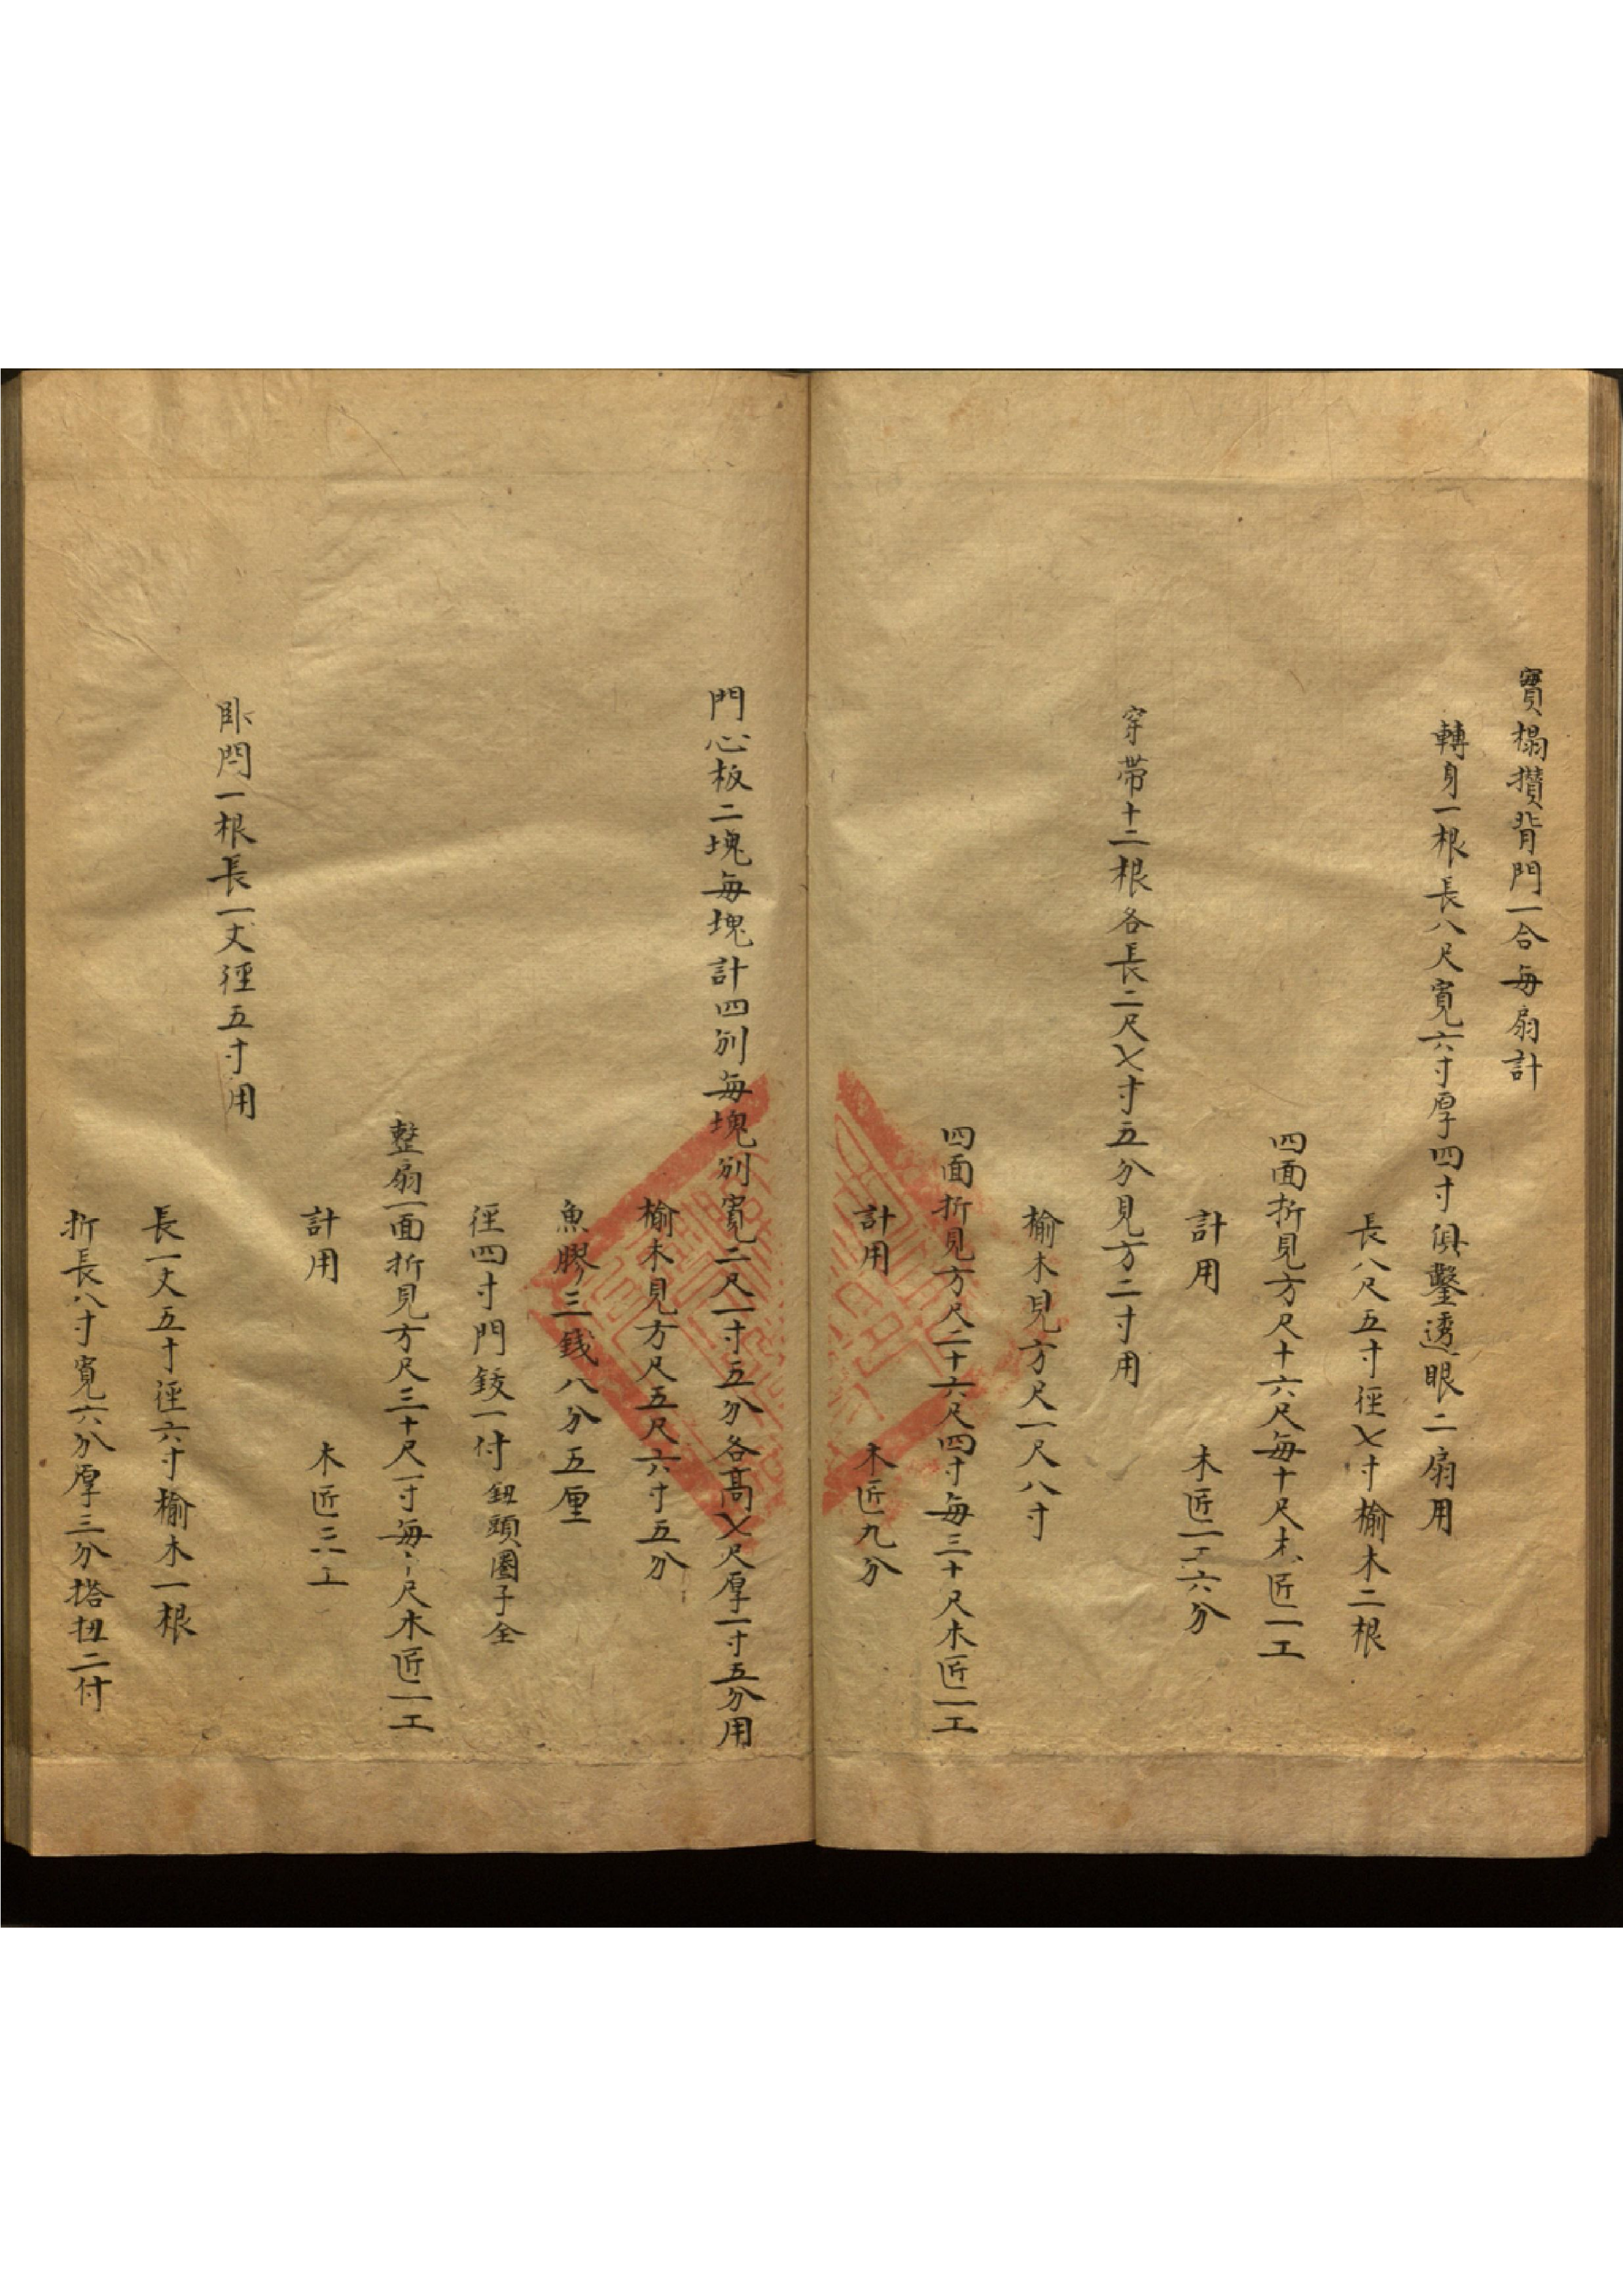 實榻攢背門一合每扇計
轉身一根長八尺寬六寸厚四寸俱鑿透眼二扇用
長八尺五寸徑七寸榆木二根
四面折見方尺十六尺每十尺木匠一工
計用　木匠一工六分
穿帶十二根各長二尺七寸五分見方二寸用
榆木見方尺一尺八寸
四面折見方尺二十六尺四寸每三十尺木匠一工
計用　木匠九分
門心板二塊每塊計四別每塊別寬二尺一寸五分各高七尺厚一寸五分用
榆木見方尺五尺六寸五分
魚膠三錢八分五厘
徑四寸門鈸一付鈕頭圈子全
整扇一面折見方尺三十尺一寸每十尺木匠一工
計用　木匠三工
臥閂一根長一丈徑五寸用
長一丈五寸徑六寸榆木一根
折長八寸寬六分厚三分搭扭二付